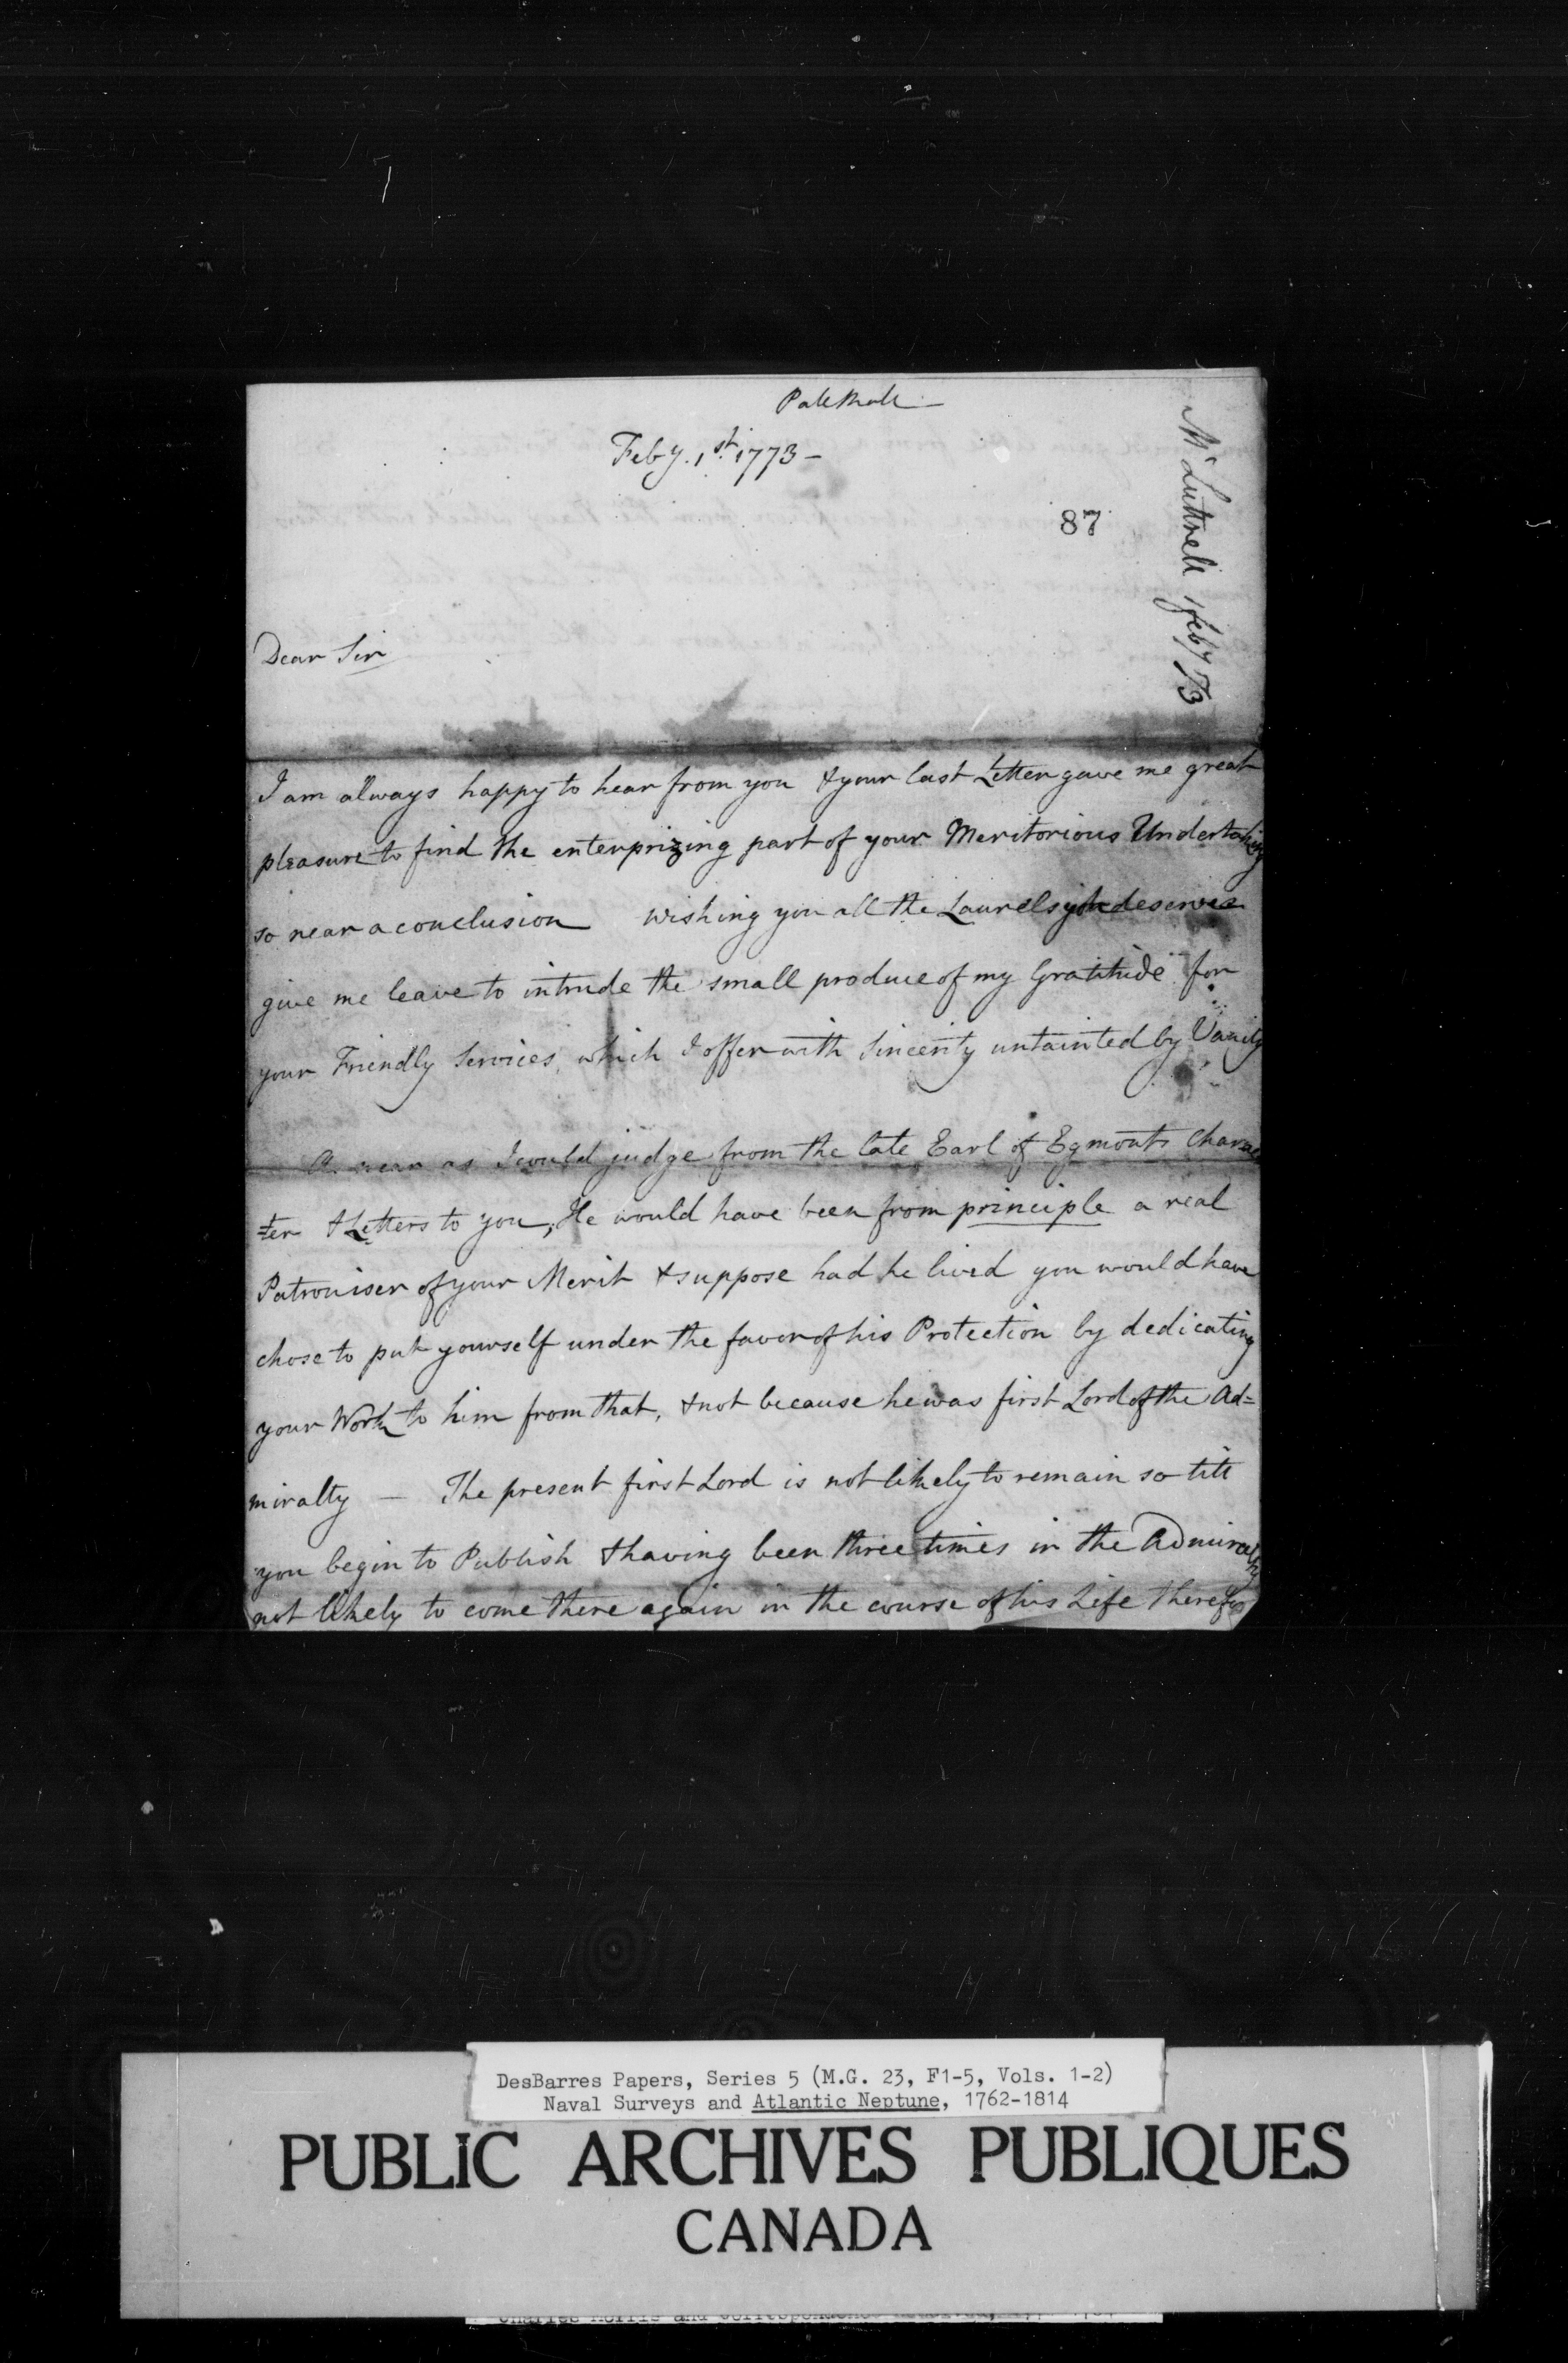 Pall Mall —
Feby. 1st. 1773 –
87
Mr Luttrell 1 feby 73
Dear Sir
I am always happy to hear from you & your last Letter gave me great
pleasure to find the enterprizing part of your Meritorious Undertaking
so near a conclusion wishing you all the Laurels you deserve
give me leave to intrude the small produce of my Gratitude for
your Friendly Services, which I offer with Sincerity untainted by Vanity
As near as I could judge from the late Earl of Egmonts Charac
=ter & Letters to you, He would have been from principle a real
Patroniser of your Merit & suppose had he lived you would have
chose to put yourself under the favor of his Protection by dedicating
your Work to him from that, & not because he was first Lord of the Ad=
miralty — The present first Lord is not likely to remain so till
you begin to Publish & having been three times in the Admiralty
not likely to come there again in the course of his Life therefore
DesBarres Papers, Series 5 (M.G. 23, F1-5, Vols. 1-2)
Naval Surveys and Atlantic Neptune, 1762-1814
PUBLIC ARCHIVES PUBLIQUES
CANADA